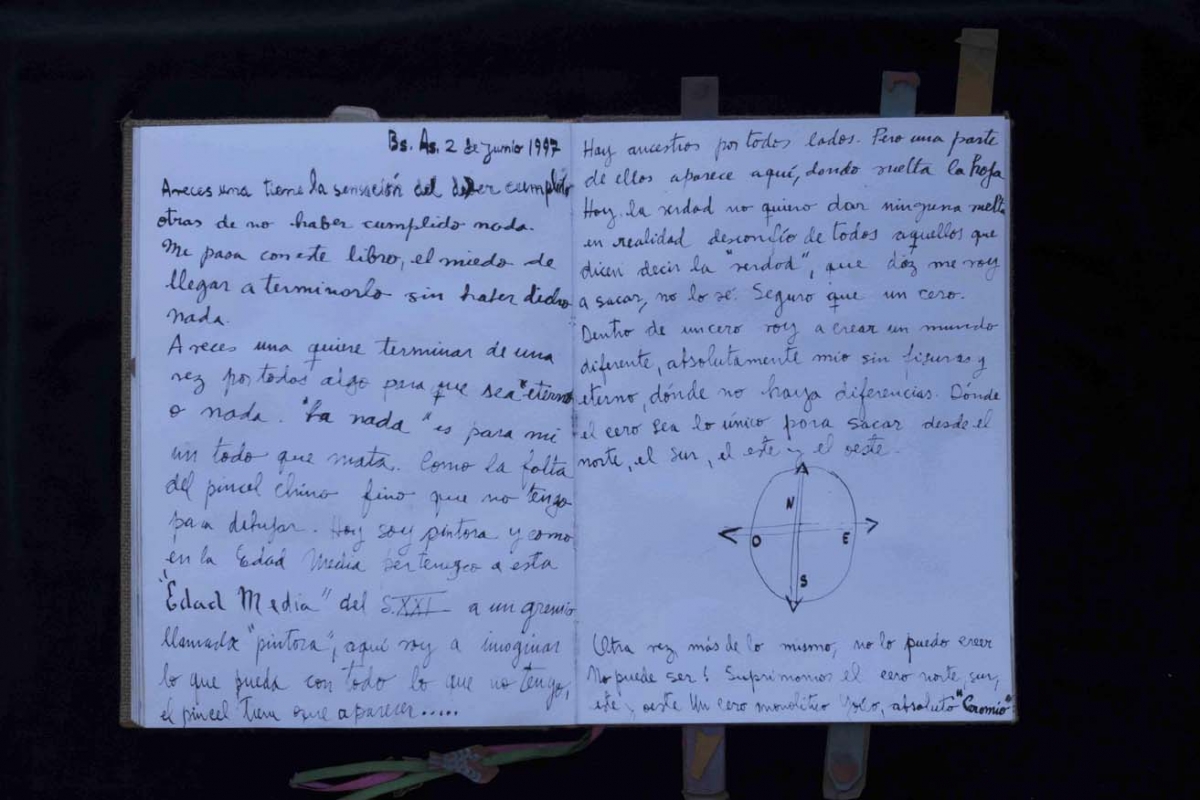 Bs. As. 2 de Junio 1997
A veces una tiene la sensación del deber cumplido
otras de no haber cumplido nada.
Me pasa con este libro, el miedo de
llegar a terminarlo sin haber dicho
nada.
A veces una quiere terminar de una
vez por todas algo para que sea "eterno
o nada. "La nada" es para mi
un todo que mata. Como la falta
del pincel chino fino que no tengo
para dibujar. Hoy soy pintora y como
en la Edad Media pertenezco a esta
"Edad Media" del S.XXI a un gremio
llamado "pintora", aquí voy a imaginar
lo que pueda con todo lo que no tengo,
el pincel tiene que aparecer.....
Hay ancestros por todos lados. Pero una parte
de ellos aparece aquí, dando vuelta la hoja
Hoy la verdad no quiero dar ninguna vuelta
en realidad desconfío de todos aquellos que
dicen decir la "verdad", que me voy
a sacar, no lo sé. Seguro que un cero.
Dentro de un cero voy a crear un mundo
diferente, absolutamente mio sin figuras y
eterno, dónde no haya diferencias. Dónde
el cero sea lo único para sacar desde el
norte, el sur, el este y el oeste.
N
O E
S
Otra vez más de lo mismo, no lo puedo creer
No puede ser! Suprimamos el cero norte, sur,
este, oeste Un cero monolitico absoluto